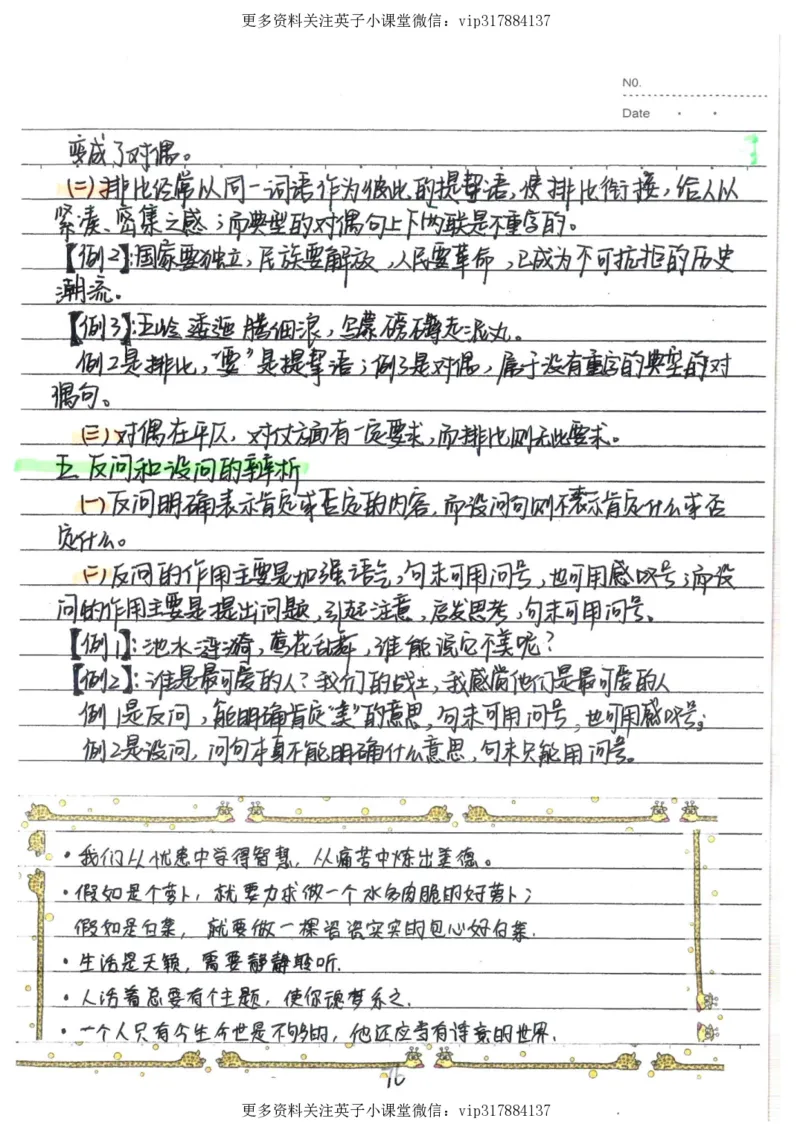 更多资料关注英子小课堂微信：vip317884137
NO.
Date
变成了对偶。
(二)排比经常以同一词语作为彼此的提挈语,使排比衔接,给人以
紧凑、密集之感；而典型的对偶句上下两联是不重字的。
【例2】:国家要独立,民族要解放,人民要革命,已成为不可抗拒的历史
潮流。
【例3】:五岭逶迤腾细浪,乌蒙磅礴走泥丸。
例2是排比,"要"是提挈语；例3是对偶,属于没有重字的典型的对
偶句。
(三)对偶在平仄、对仗方面有一定要求,而排比则无此要求。
五 反问和设问的辨析
(一)反问明确表示肯定或否定的内容,而设问句则不表示肯定什么或否
定什么。
(二)反问的作用主要是加强语气,句末可用问号,也可用感叹号；而设
问的作用主要是提出问题,引起注意,启发思考,句末可用问号。
【例1】:池水涟漪,莺花乱舞,谁能说它不美呢?
【例2】:谁是最可爱的人?我们的战士,我感觉他们是最可爱的人
例1是反问,能明确肯定"美"的意思,句末可用问号,也可用感叹号；
例2是设问,问句本身不能明确什么意思,句末只能用问号。
·我们从忧患中学得智慧,从痛苦中炼出美德。
·假如是个萝卜,就要力求做一个水多肉脆的好萝卜；
假如是白菜,就要做一棵瓷瓷实实的包心好白菜.
·生活是天籁,需要静静聆听.
·人活着总要有个主题,使你魂梦系之.
·一个人只有今生今世是不够的,他还应当有诗意的世界.
16
更多资料关注英子小课堂微信：vip317884137